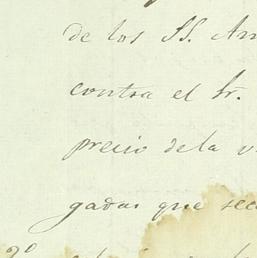 de los SS. An
contra el Sr.
precio de la v
gadas que sea
2º